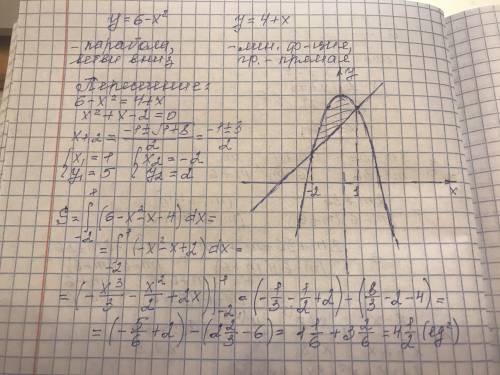 y=6-x² y=4+x
- парабола, - лин. ф-ция,
ветви вниз гр. - прямая
Пересечение:
6-x²=4+x
x²+x-2=0
x₁,₂ = (-1±√(1+8))/2 = (-1±3)/2
{x₁=1 {x₂=-2
{y₁=5 {y₂=2
y
x
-2 1
S=∫₋₂¹(6-x²-x-4)dx=
=∫₋₂¹(-x²-x+2)dx=
=(-x³/3-x²/2+2x)|₋₂¹=(-1/3-1/2+2)-(8/3-2-4)=
=(-5/6+2)-(2 2/3-6)=1 1/6+3 2/6=4 1/2 (ед²)